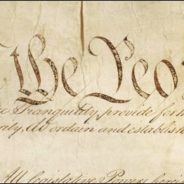 the Peo
ic Tranquility, provide for th
rity, do ordain and establish
All legislative Powers herei